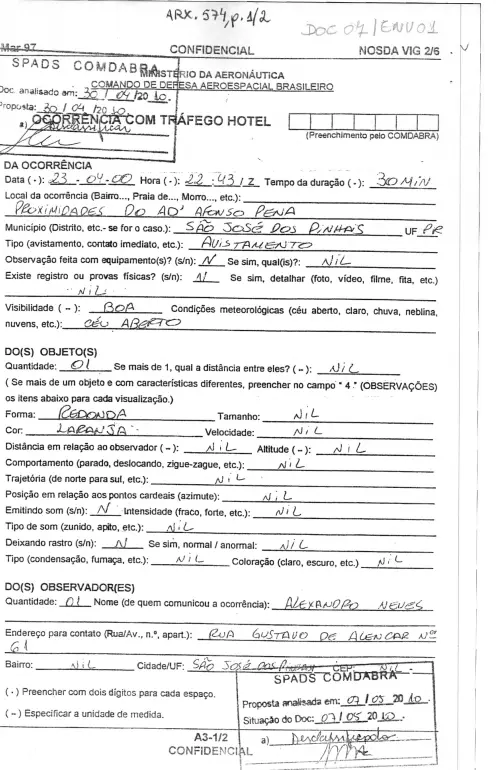 ARX. 574, p. 1/2
DOC 04 / ENV 01
Mar 97 CONFIDENCIAL NOSDA VIG 2/6
SPADS COMDABRA MINISTÉRIO DA AERONÁUTICA
COMANDO DE DEFESA AEROESPACIAL BRASILEIRO
Doc. analisado em: 30 / 04 /20 10.
Proposta: 30 / 04 /20 10
a) Desclassificar
OCORRÊNCIA COM TRÁFEGO HOTEL
(Preenchimento pelo COMDABRA)
DA OCORRÊNCIA
Data (·): 23 - 04 - 00 Hora (·): 22 : 43 / Z Tempo da duração (·): 30 MIN
Local da ocorrência (Bairro..., Praia de..., Morro..., etc.):
PROXIMIDADES DO AD' AFONSO PENA
Município (Distrito, etc.- se for o caso.): SÃO JOSÉ DOS PINHAIS UF PR
Tipo (avistamento, contato imediato, etc.): AVISTAMENTO
Observação feita com equipamento(s)? (s/n): N Se sim, qual(is)?: NIL
Existe registro ou provas físicas? (s/n): N Se sim, detalhar (foto, vídeo, filme, fita, etc.)
NIL
Visibilidade ( – ): BOA Condições meteorológicas (céu aberto, claro, chuva, neblina,
nuvens, etc.): CÉU ABERTO
DO(S) OBJETO(S)
Quantidade: 01 Se mais de 1, qual a distância entre eles? ( – ): NIL
( Se mais de um objeto e com características diferentes, preencher no campo " 4 ." (OBSERVAÇÕES)
os itens abaixo para cada visualização.)
Forma: REDONDA Tamanho: NIL
Cor: LARANJA Velocidade: NIL
Distância em relação ao observador ( – ): NIL Altitude ( – ): NIL
Comportamento (parado, deslocando, zigue-zague, etc.): NIL
Trajetória (de norte para sul, etc.): NIL
Posição em relação aos pontos cardeais (azimute): NIL
Emitindo som (s/n): N Intensidade (fraco, forte, etc.): NIL
Tipo de som (zunido, apito, etc.): NIL
Deixando rastro (s/n): N Se sim, normal / anormal: NIL
Tipo (condensação, fumaça, etc.): NIL Coloração (claro, escuro, etc.) NIL
DO(S) OBSERVADOR(ES)
Quantidade: 01 Nome (de quem comunicou a ocorrência): ALEXANDRO NEVES
Endereço para contato (Rua/Av., n.º, apart.): RUA GUSTAVO DE ALENCAR Nº
61
Bairro: NIL Cidade/UF: SÃO JOSÉ DOS PINHAIS CEP: NIL -
(·) Preencher com dois dígitos para cada espaço.
( – ) Especificar a unidade de medida.
SPADS COMDABRA
Proposta analisada em: 07 / 05 20 10.
Situação do Doc: 07 / 05 20 10.
a) Desclassificado
A3-1/2
CONFIDENCIAL